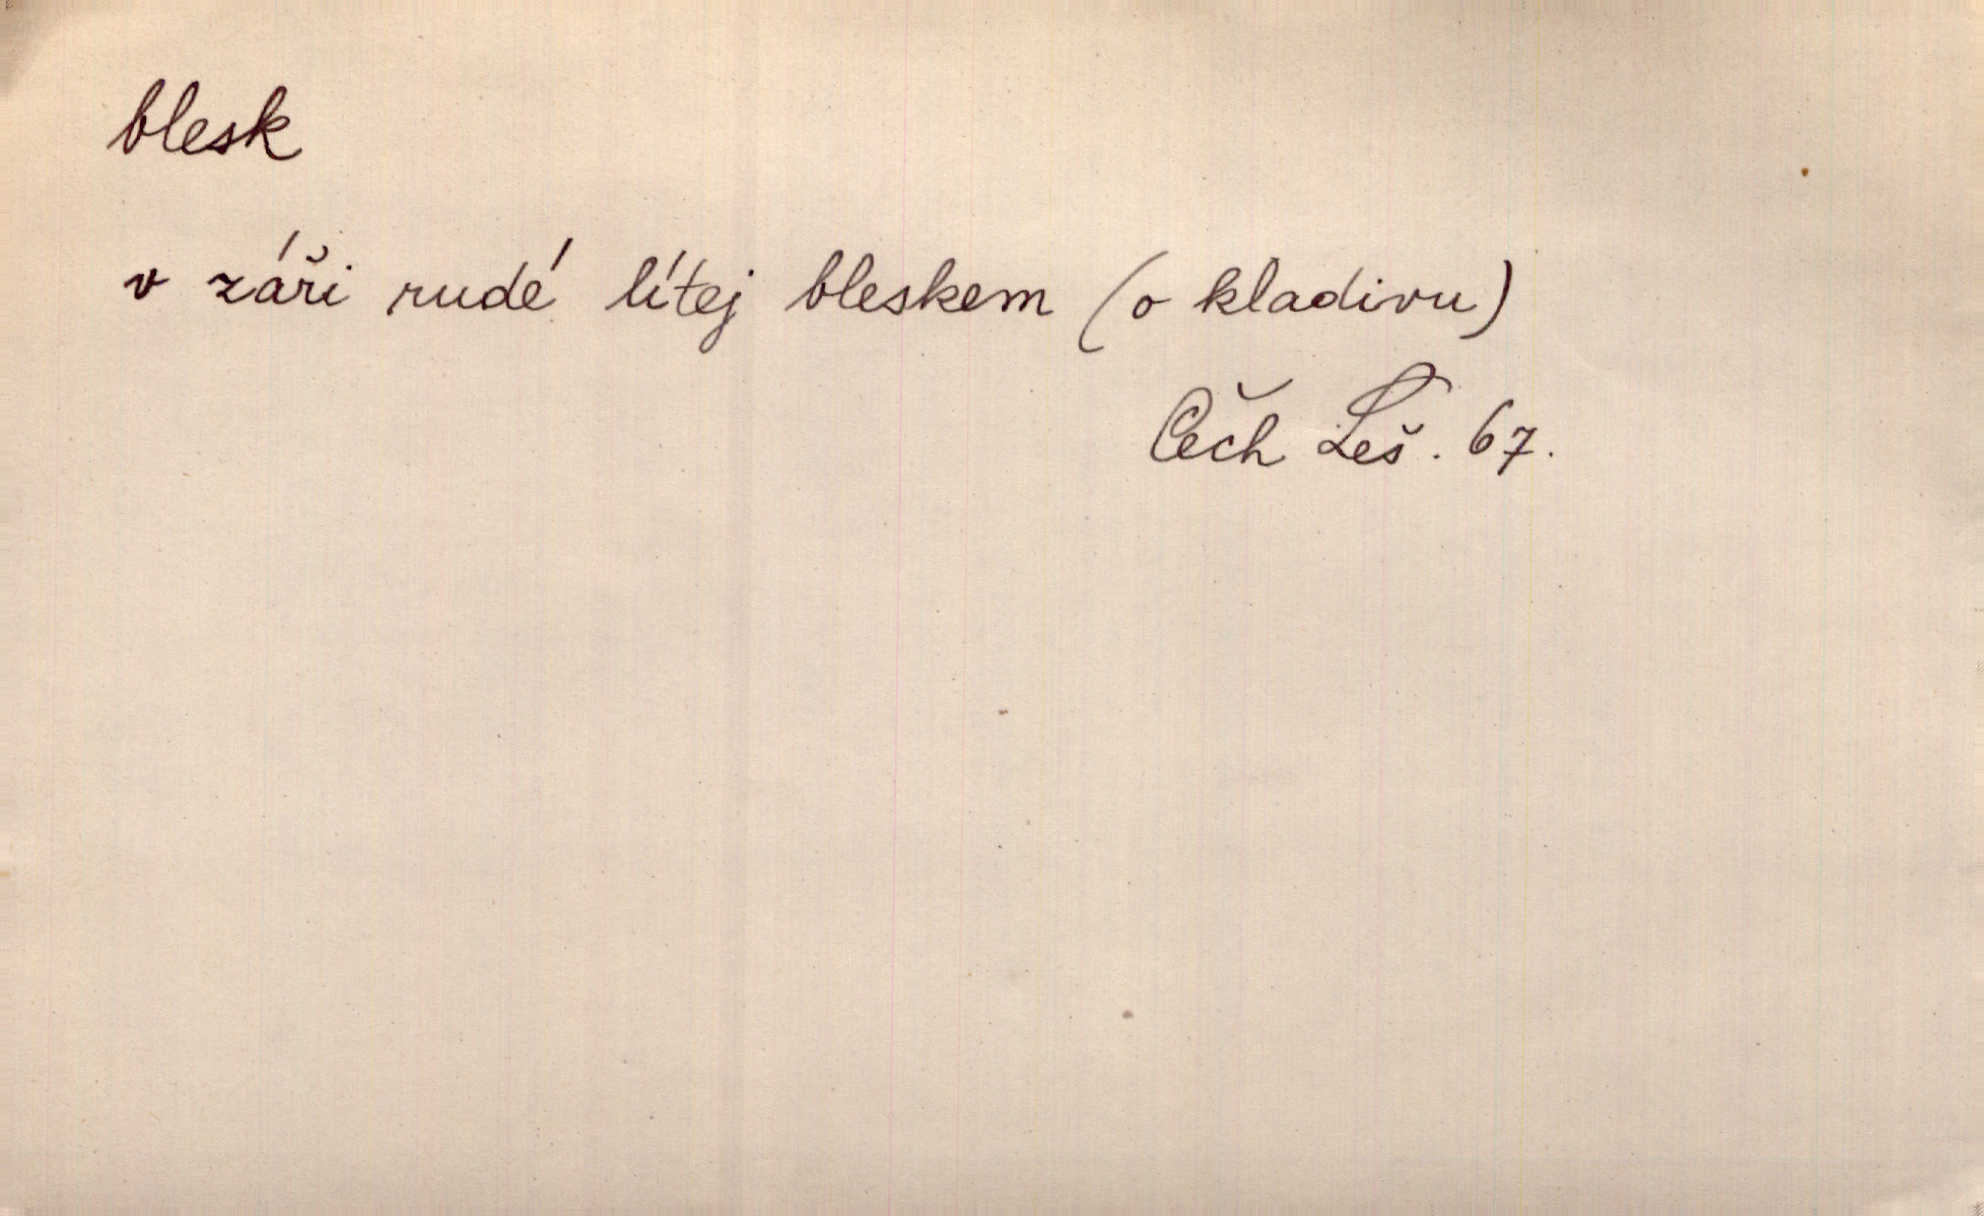 blesk
v záři rudé lítej bleskem (o kladivu)
Čech Leš. 67.